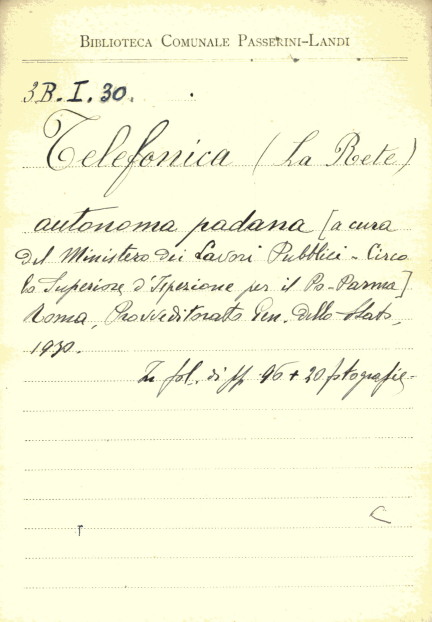 BIBLIOTECA COMUNALE PASSERINI-LANDI
3B. I. 30.
Telefonica (La Rete)
autonoma padana [a cura
del Ministero dei Lavori Pubblici - Circo
lo Superiore d'Ispezione per il Po-Parma]
Roma, Provveditorato Gen. dello Stato,
1930.
In fol. di pp. 96 + 20 fotografie -